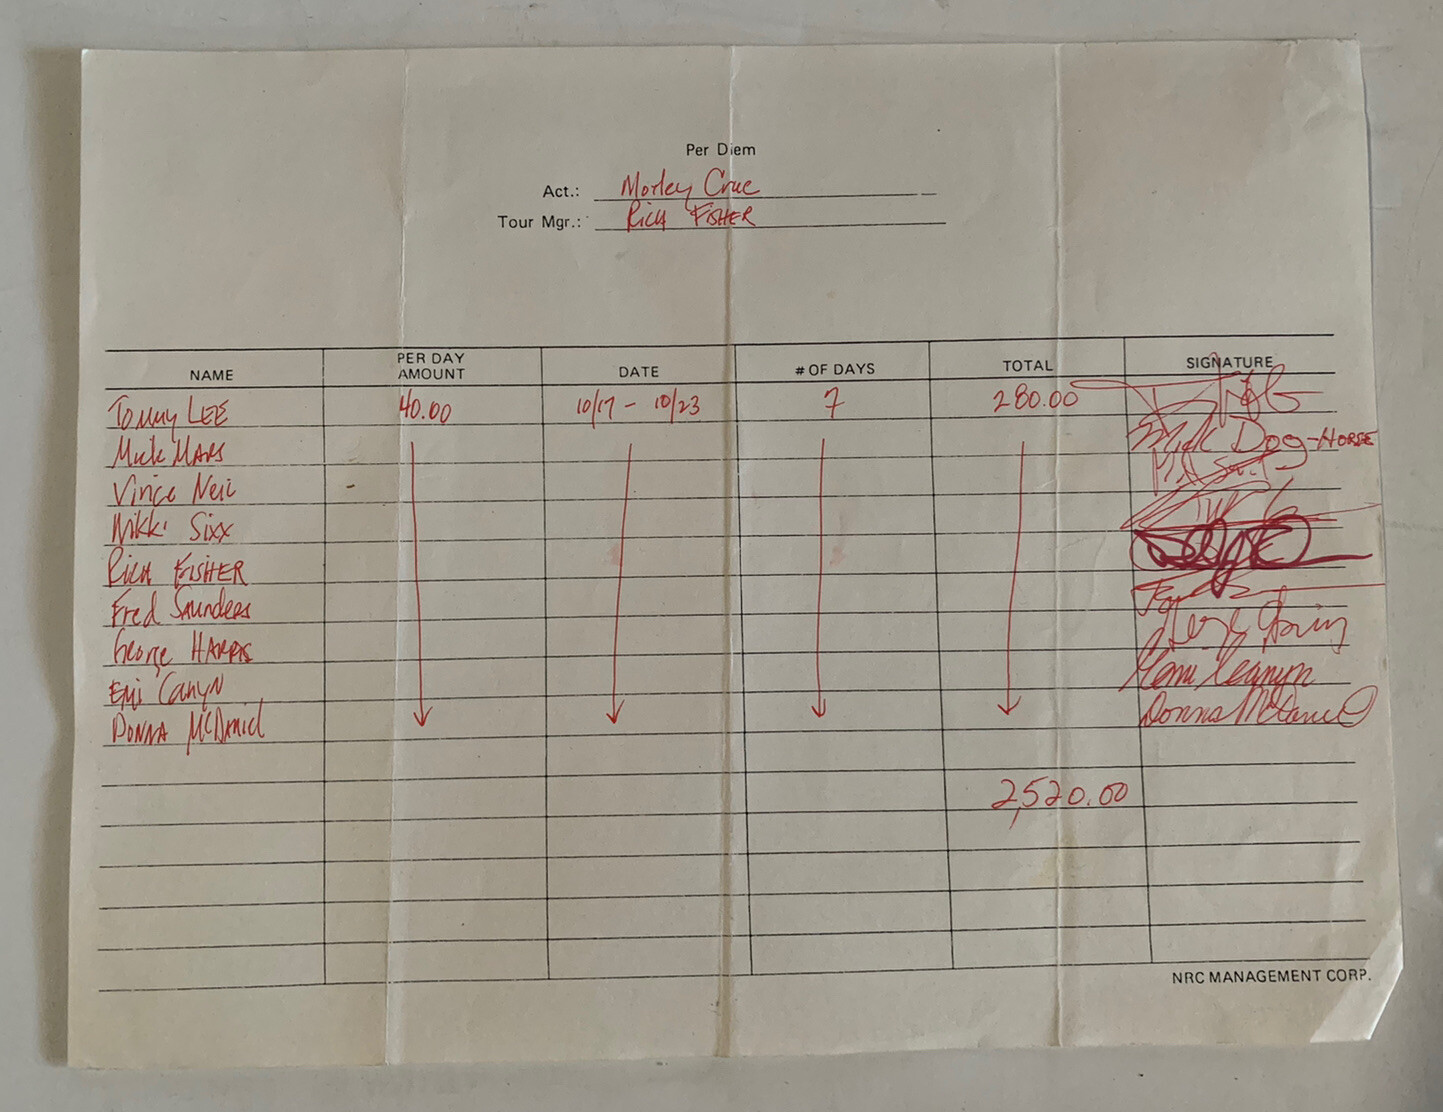 Per Diem
Act.: Motley Crue
Tour Mgr.: Rich FISHER
NAME PER DAY AMOUNT DATE # OF DAYS TOTAL SIGNATURE
Tommy LEE 40.00 10/17 - 10/23 7 280.00
Mick MARS Mick Dog-HORSE
Vince Neil
Nikki Sixx
Rich FISHER
Fred Saunders
George HARRIS
Emi Canyn
DONNA McDaniel Donna McDaniel
2,520.00
NRC MANAGEMENT CORP.